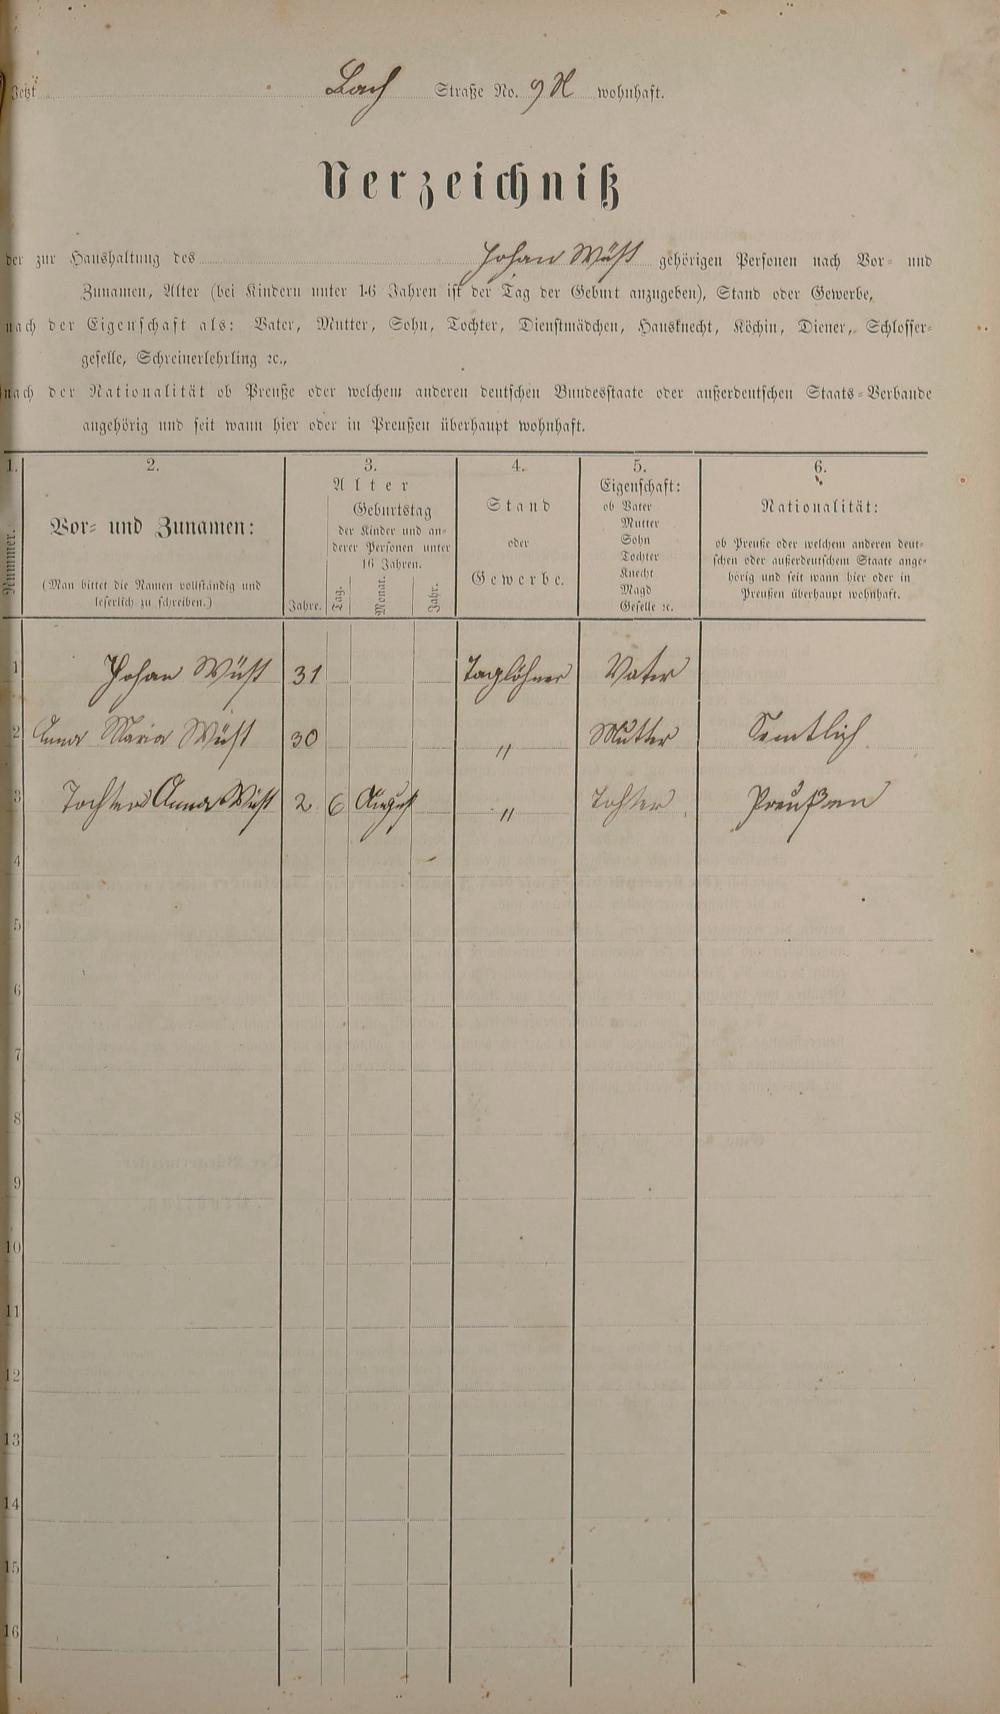 Jetzt Bach Straße No. 9 wohnhaft.
Verzeichniß
der zur Haushaltung des Johan Wüst gehörigen Personen nach Vor- und
Zunamen, Alter (bei Kindern unter 16 Jahren ist der Tag der Geburt anzugeben), Stand oder Gewerbe,
nach der Eigenschaft als: Vater, Mutter, Sohn, Tochter, Dienstmädchen, Hausknecht, Köchin, Diener, Schlosser-
geselle, Schreinerlehrling ꝛc.,
nach der Nationalität ob Preuße oder welchem anderen deutschen Bundesstaate oder außerdeutschen Staats-Verbande
angehörig und seit wann hier oder in Preußen überhaupt wohnhaft.
1. 2. 3. 4. 5. 6.
Nummer.
Vor- und Zunamen:
(Man bittet die Namen vollständig und
leserlich zu schreiben.)
Alter
Jahre.
Geburtstag
der Kinder und an-
derer Personen unter
16 Jahren.
Tag. Monat. Jahr.
Stand
oder
Gewerbe.
Eigenschaft:
ob Vater
Mutter
Sohn
Tochter
Knecht
Magd
Geselle ꝛc.
Nationalität:
ob Preuße oder welchem anderen deut-
schen oder außerdeutschem Staate ange-
hörig und seit wann hier oder in
Preußen überhaupt wohnhaft.
1 Johan Wüst 31 Taglöhner Vater
2 Anna Maria Wüst 30 " Mutter Semtlich
3 Tochter Anna Wüst 2 6 August " Tochter Preußen
4
5
6
7
8
9
10
11
12
13
14
15
16